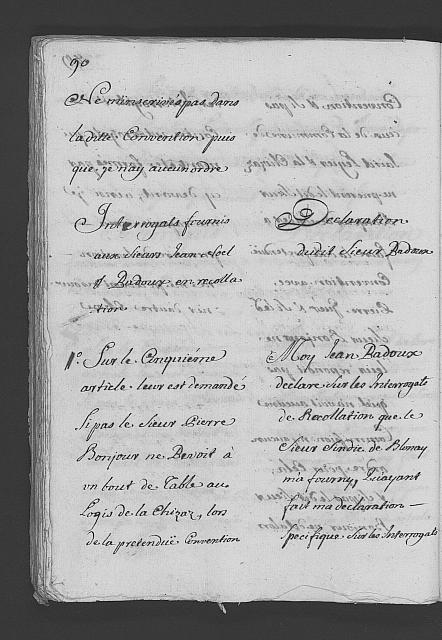 90
Ne m'inscrivés pas dans
la ditte Convention puis
que je n'ay aucun ordre
Interrogats fournis
aux Sieurs Jean Noel
& Badoux en recolla
tion
1.° Sur le Cinquiéme
article leur est demandé
Si pas le Sieur Pierre
Bonjour ne Bevoit à
un bout de Table au
Logis de la Chizaz, lors
de la pretenduë Convention
Declaration
dudit Sieur Badoux
Moy Jean Badoux
declare sur les Interrogats
de Recollation que le
Sieur Sindic de Blonay
m'a fourny, Luy ayant
fait ma declaration
specifique sur les Interrogats